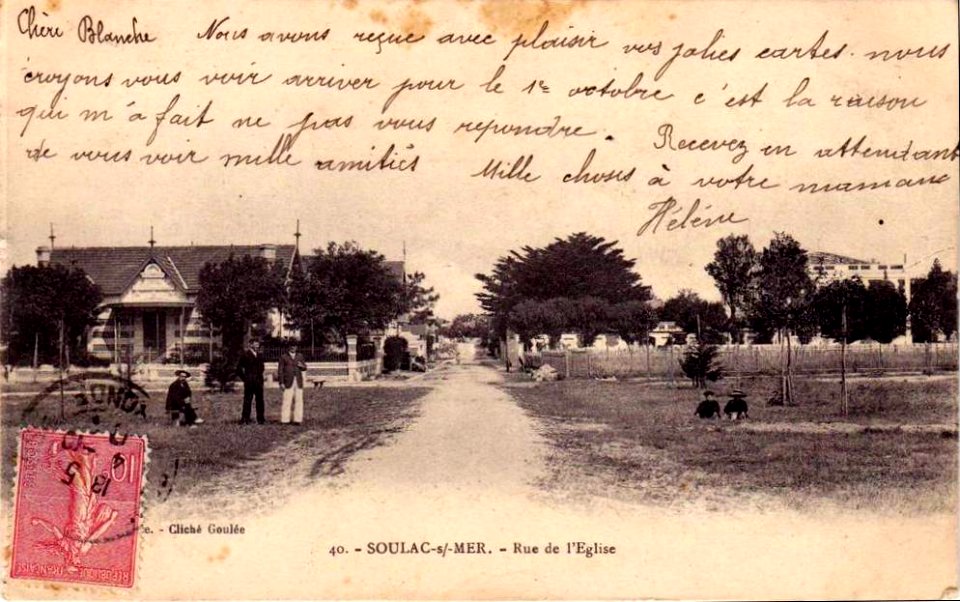 Chère Blanche Nous avons reçue avec plaisir vos jolies cartes. nous
croyons vous voir arriver pour le 1er octobre c'est la raison
qui m'a fait ne pas vous repondre. Recevez en attendant
de vous voir mille amitiés Mille choses à votre maman
Hélène
GIRONDE
10
REPUBLIQUE FRANÇAISE
- Cliché Goulée
40. - SOULAC-s/-MER. - Rue de l'Eglise